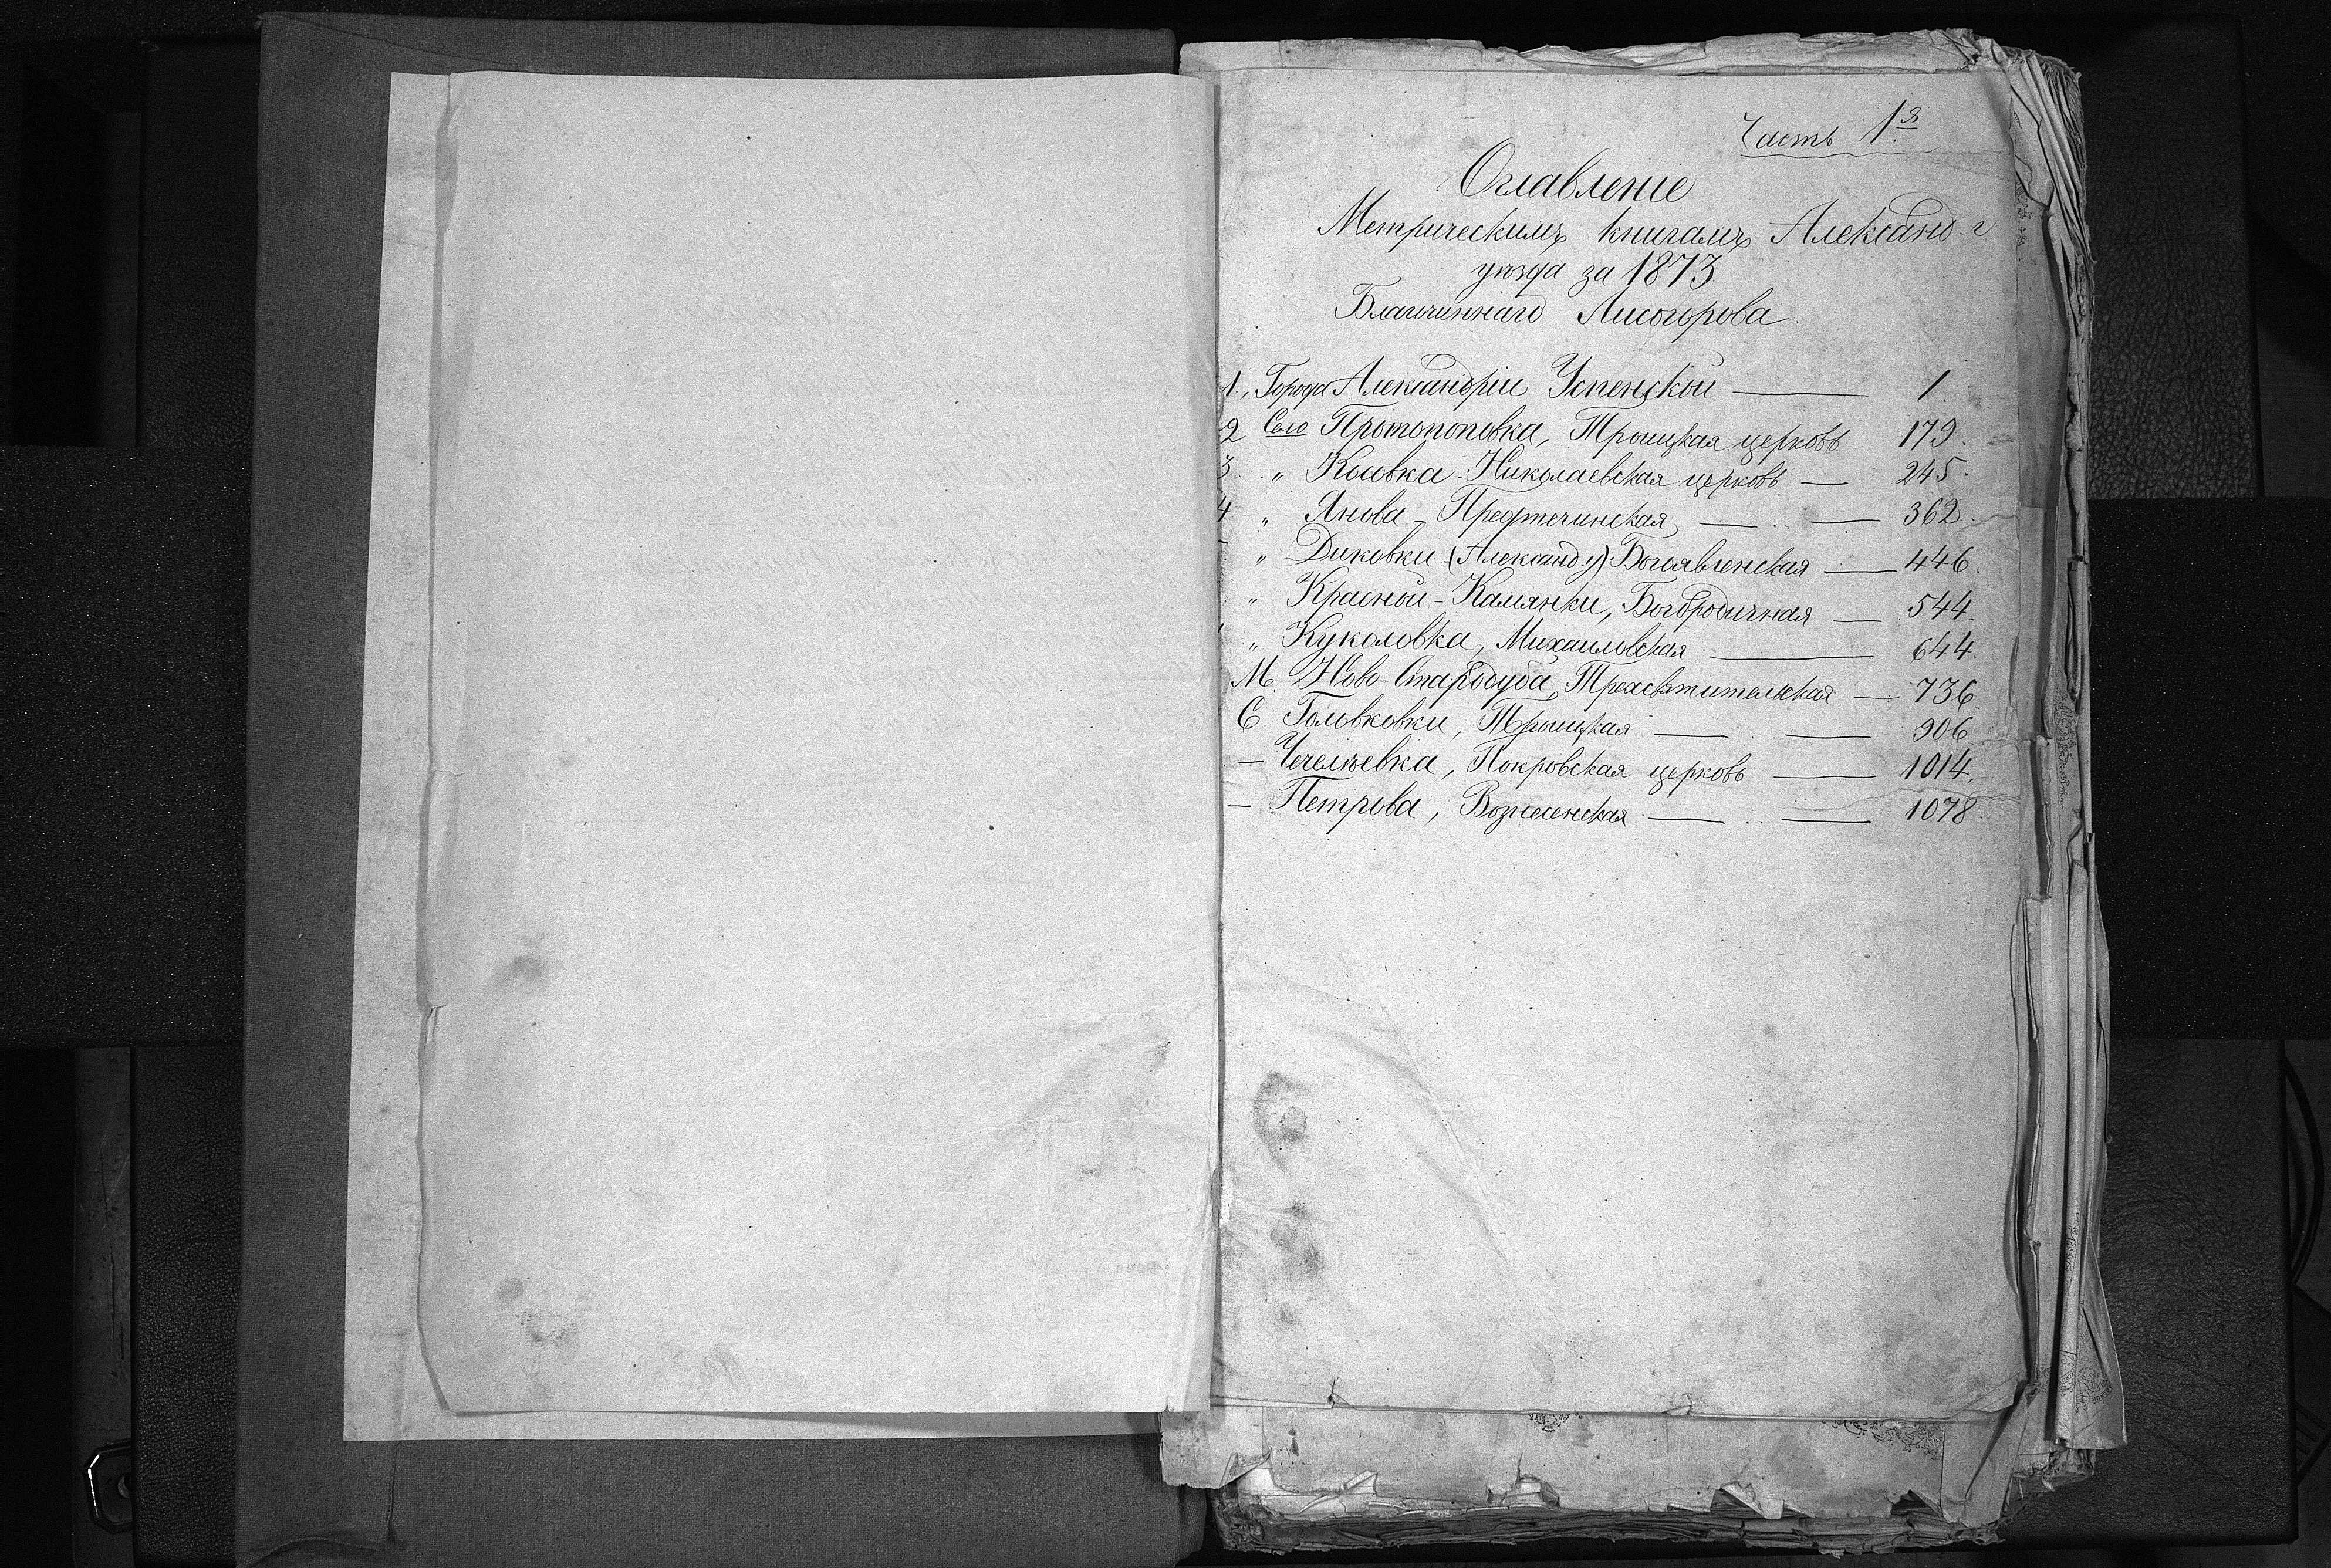 Часть 1я
Оглавленіе
Метрическимъ книгамъ Александ. г
уѣзда за 1873
Благочиннаго Лисогорова
1., Города Александріи Успенской — 1.
2 Село Протопоповка, Троицкая церковь 179.
3. „ Косовка Николаевская церковь — 245.
4 „ Янова - Предтечинская — „ — 362.
„ Диковки (Александ. у) Богоявленская — 446.
„ Красной-Камянки, Богородичная — 544.
„ Куколовка, Михаиловская — 644.
М. Ново-Стародуба, Трехсвятительская — 736.
С. Головковки, Троицкая — „ — 906
— Чечелѣевка, Покровская церковь — 1014.
— Петрова, Вознесенская — „ — 1078.